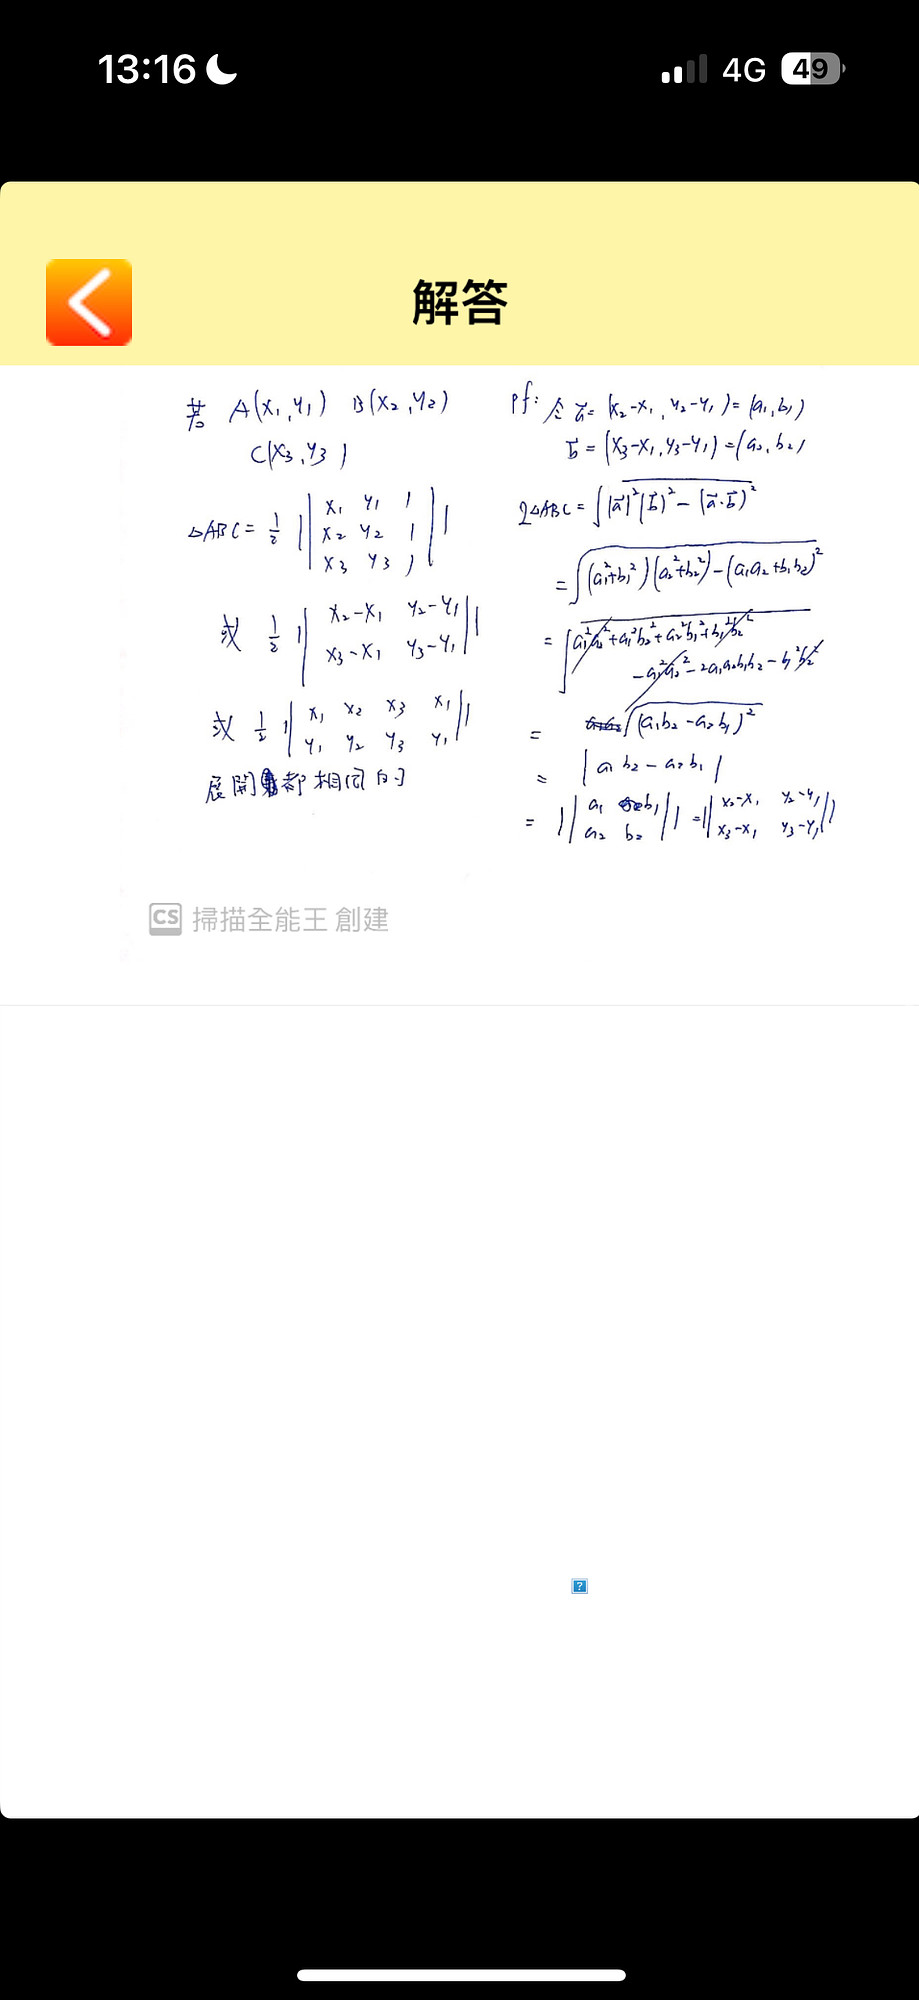 13:16
4G 49
解答
若 A(x₁,y₁) B(x₂,y₂)
C(x₃,y₃)
△ABC = 1/2 ||x₁ y₁ 1
x₂ y₂ 1
x₃ y₃ 1||
或 1/2 ||x₂-x₁ y₂-y₁
x₃-x₁ y₃-y₁||
或 1/2 ||x₁ x₂ x₃ x₁
y₁ y₂ y₃ y₁||
展開都相同的
pf: 令 a⃗ = (x₂-x₁, y₂-y₁) = (a₁,b₁)
b⃗ = (x₃-x₁, y₃-y₁) = (a₂,b₂)
2△ABC = √(|a⃗|²|b⃗|² - (a⃗·b⃗)²)
= √((a₁²+b₁²)(a₂²+b₂²) - (a₁a₂+b₁b₂)²)
= √(a₁²a₂²+a₁²b₂²+a₂²b₁²+b₁²b₂²
-a₁²a₂²-2a₁a₂b₁b₂-b₁²b₂²)
= √((a₁b₂-a₂b₁)²)
= |a₁b₂-a₂b₁|
= ||a₁ b₁
a₂ b₂|| = ||x₂-x₁ y₂-y₁
x₃-x₁ y₃-y₁||
CS 掃描全能王 創建
?